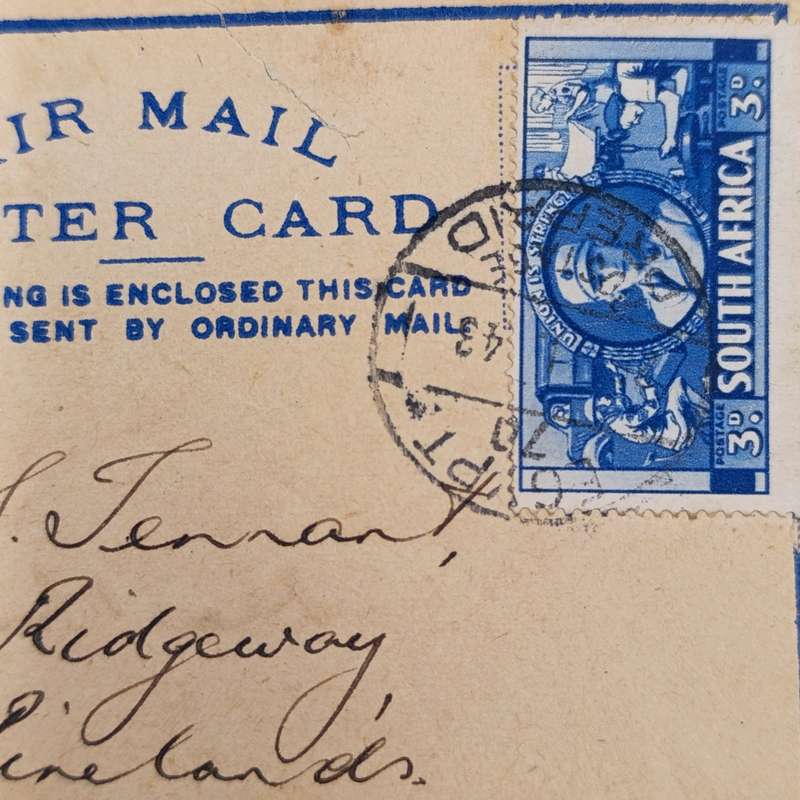 IR MAIL
TER CARD
NG IS ENCLOSED THIS CARD
SENT BY ORDINARY MAIL.
POSTAGE 3D. SOUTH AFRICA POSTAGE 3D.
UNION IS STRENGTH
43
EGYPT
70
S. Tennant,
Ridgeway,
Pinelands.